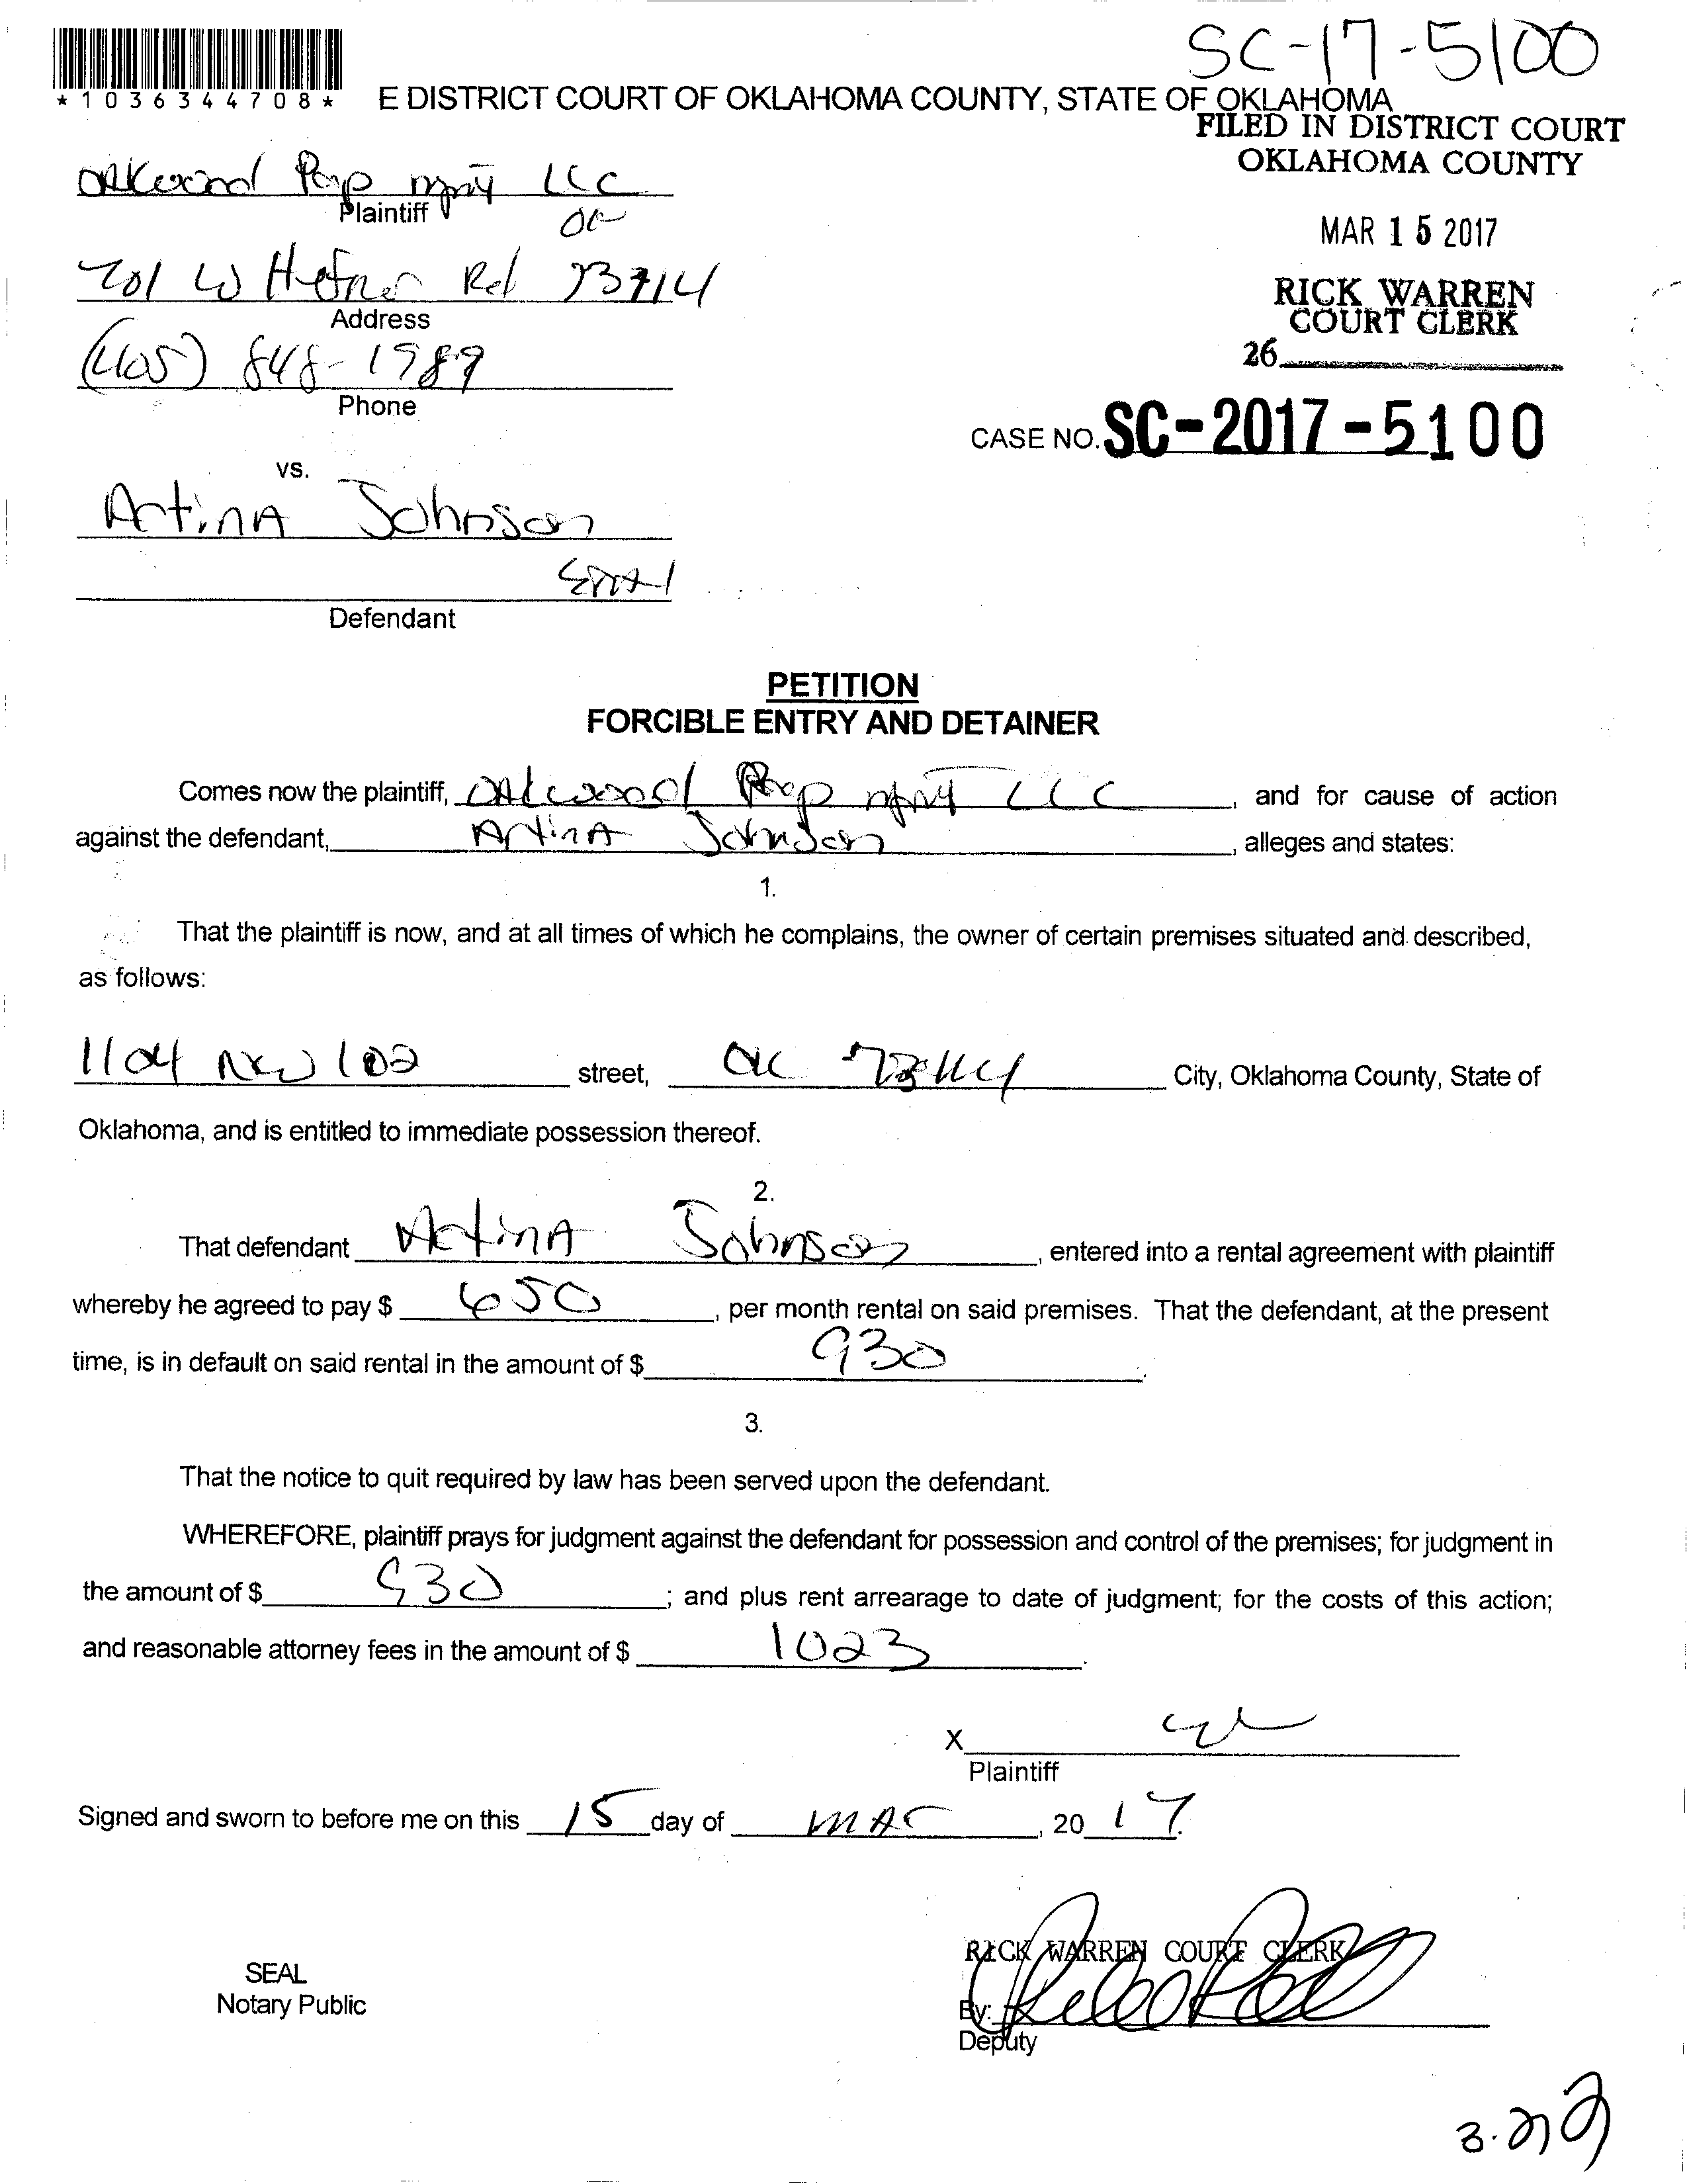 SC-17-5100
*1036344708*
E DISTRICT COURT OF OKLAHOMA COUNTY, STATE OF OKLAHOMA
FILED IN DISTRICT COURT
OKLAHOMA COUNTY
OAkwood Prop mgmt LLC
Plaintiff
OK
MAR 15 2017
201 W Hefner Rd 73114
Address
RICK WARREN
COURT CLERK
(405) 848-1989
26
Phone
CASE NO. SC-2017-5100
vs.
ArtinA Johnson
Defendant
PETITION
FORCIBLE ENTRY AND DETAINER
Comes now the plaintiff, OAkwood Prop mgmt LLC, and for cause of action
against the defendant, ArtinA Johnson, alleges and states:
1.
That the plaintiff is now, and at all times of which he complains, the owner of certain premises situated and described,
as follows:
1104 NW 102 street, OK 73114 City, Oklahoma County, State of
Oklahoma, and is entitled to immediate possession thereof.
2.
That defendant ArtinA Johnson, entered into a rental agreement with plaintiff
whereby he agreed to pay $ 650, per month rental on said premises. That the defendant, at the present
time, is in default on said rental in the amount of $ 930.
3.
That the notice to quit required by law has been served upon the defendant.
WHEREFORE, plaintiff prays for judgment against the defendant for possession and control of the premises; for judgment in
the amount of $ 930; and plus rent arrearage to date of judgment; for the costs of this action;
and reasonable attorney fees in the amount of $ 1023.
X
Plaintiff
Signed and sworn to before me on this 15 day of mAr, 20 17.
RICK WARREN COURT CLERK
SEAL
Notary Public
By:
Deputy